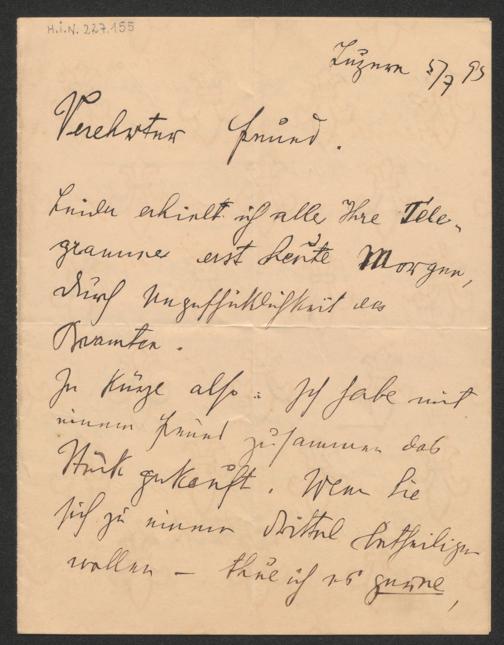 H.I.N. 227.155
Luzern 5/7 95
Verehrter Freund.
Leider erhielt ich alle Ihre Tele-
gramme erst heute Morgen,
durch Ungeschicklichkeit des
Beamten.
In Kürze also: Ich habe mit
einem Freund zusammen das
Stück gekauft. Wenn Sie
sich zu einem Drittel betheiligen
wollen – thue ich es gerne,